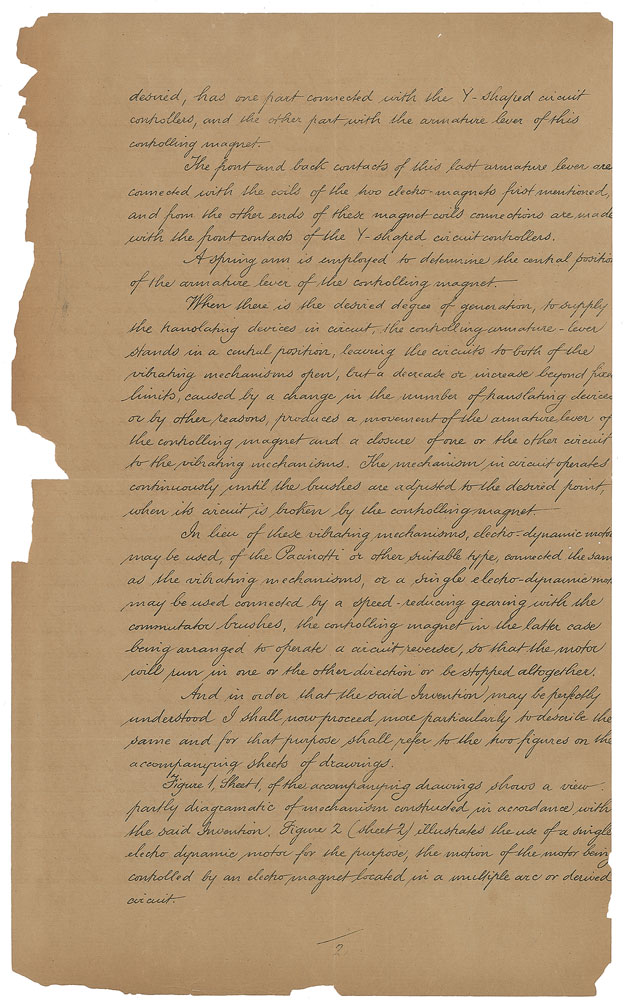 desired, has one part connected with the Y-shaped circuit
controllers, and the other part with the armature lever of this
controlling magnet.
The front and back contacts of this last armature lever are
connected with the coils of the two electro-magnets first mentioned,
and from the other ends of these magnet coils connections are made
with the front contacts of the Y-shaped circuit controllers.
A spring arm is employed to determine the central position
of the armature lever of the controlling magnet.
When there is the desired degree of generation, to supply
the translating devices in circuit, the controlling armature-lever
stands in a central position, leaving the circuits to both of the
vibrating mechanisms open, but a decrease or increase beyond fixed
limits, caused by a change in the number of translating devices
or by other reasons, produces a movement of the armature lever of
the controlling magnet and a closure of one or the other circuit
to the vibrating mechanisms. The mechanism in circuit operates
continuously until the brushes are adjusted to the desired point,
when its circuit is broken by the controlling magnet.
In lieu of these vibrating mechanisms, electro-dynamic motors
may be used, of the Pacinotti or other suitable type, connected the same
as the vibrating mechanisms, or a single electro-dynamic mot
may be used connected by a speed-reducing gearing with the
commutator brushes, the controlling magnet in the latter case
being arranged to operate a circuit reverser, so that the motor
will run in one or the other direction or be stopped altogether.
And in order that the said Invention may be perfectly
understood I shall now proceed more particularly to describe the
same and for that purpose shall refer to the two figures on the
accompanying sheets of drawings.
Figure 1, Sheet 1, of the accompanying drawings shows a view
partly diagramatic of mechanism constructed in accordance with
the said Invention. Figure 2 (sheet 2) illustrates the use of a single
electro dynamic motor for the purpose, the motion of the motor being
controlled by an electro magnet located in a multiple arc or derived
circuit.
2